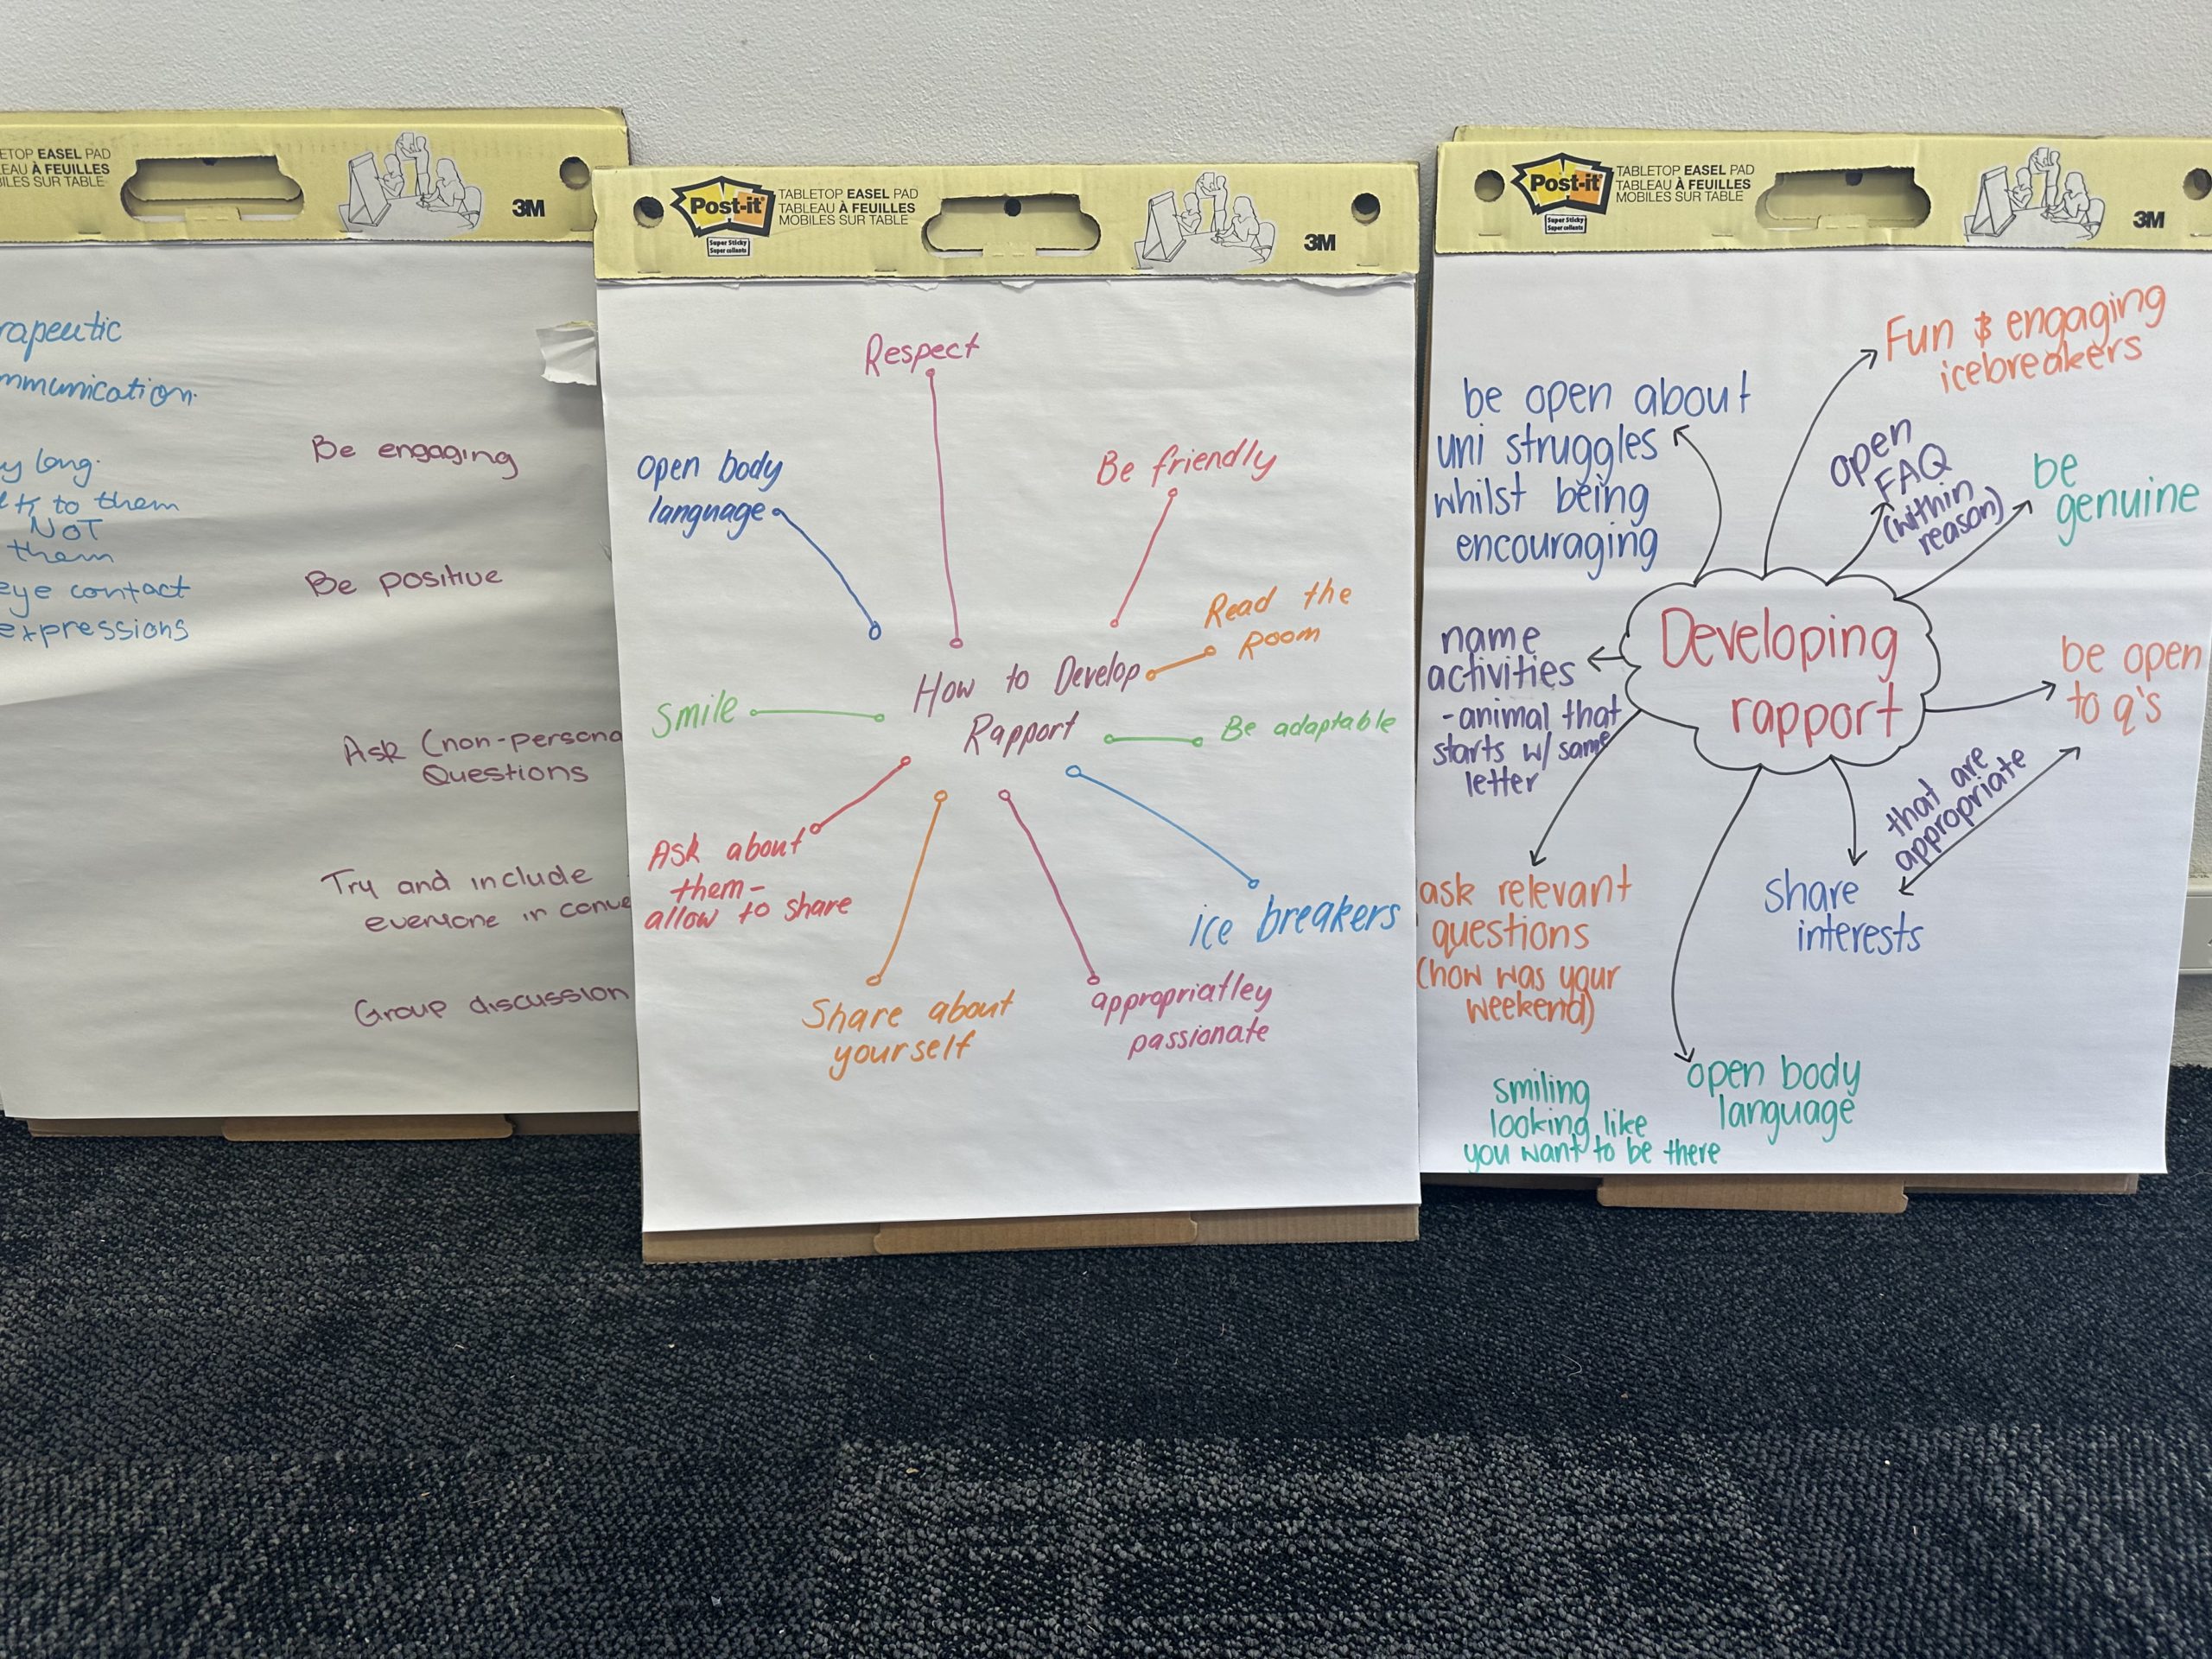 EASEL PAD
À FEUILLES
SUR TABLE
3M
mmunication
long.
to them
NOT
them
eye contact
expressions
Be engaging
Be positive
Ask (non-persona
Questions
Try and include
everyone in conve
Group discussion
Post-it
Super Sticky
Super collants
TABLETOP EASEL PAD
TABLEAU À FEUILLES
MOBILES SUR TABLE
3M
Respect
open body
language
Be friendly
Read the
Room
How to Develop
Rapport
Smile
Be adaptable
Ask about
them-
allow to share
ice breakers
Share about
yourself
appropriatley
passionate
Post-it
Super Sticky
Super collants
TABLETOP EASEL PAD
TABLEAU À FEUILLES
MOBILES SUR TABLE
3M
Fun & engaging
icebreakers
be open about
uni struggles
whilst being
encouraging
open
FAQ
(within
reason)
be
genuine
Developing
rapport
name
activities
-animal that
starts w/ same
letter
be open
to q's
that are
appropriate
ask relevant
questions
(how was your
weekend)
share
interests
open body
language
smiling
looking like
you want to be there